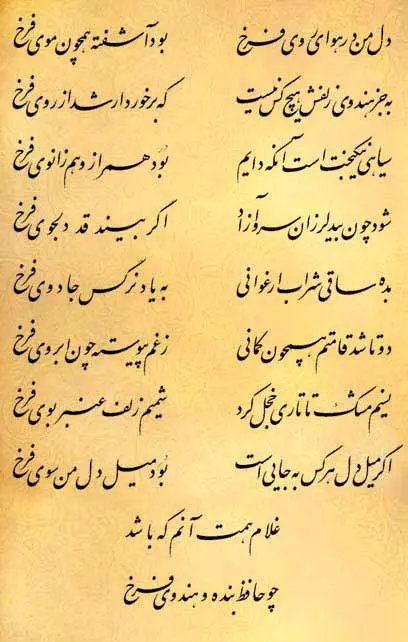 دل من در هوای روی فرخ بود آشفته همچون موی فرخ
به جز هندوی زلفش هیچ کس نیست که برخوردار شد از روی فرخ
سیاهی نیکبخت است آنکه دایم بود همراز و هم زانوی فرخ
شود چون بید لرزان سرو آزاد اگر بیند قد دلجوی فرخ
بده ساقی شراب ارغوانی به یاد نرگس جادوی فرخ
دوتا شد قامتم همچون کمانی ز غم پیوسته چون ابروی فرخ
نسیم مشک تاتاری خجل کرد شمیم زلف عنبر بوی فرخ
اگر میل دل هرکس به جایی است بود میل دل من سوی فرخ
غلام همت آنم که باشد
چو حافظ بنده و هندوی فرخ